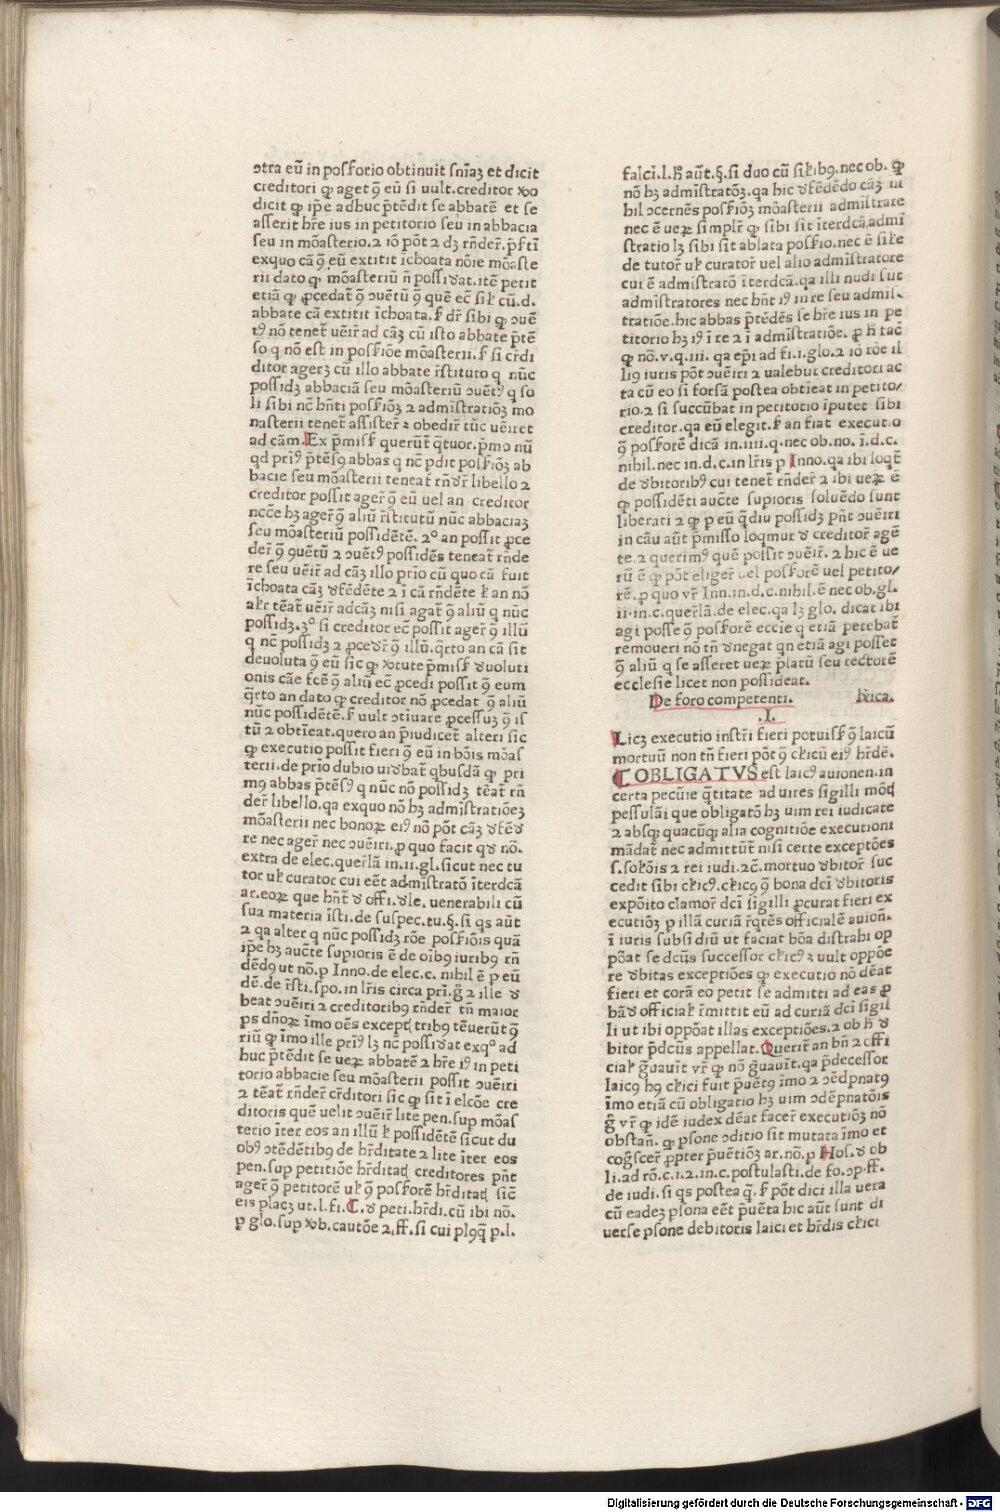 ↄtra eū in posſorio obtinuit sn̄iaʒ et dicit
creditori qꝫ aget ꝯ̄ eū si uult. creditor ꝟo
dicit qꝫ ip̄e adhuc p̄tēdit se abbatē et se
asserit hr̄e ius in petitorio seu in abbacia
seu in mōasterio. ⁊ iō pōt ⁊ dʒ rn̄der̄. p̄sti
exquo cā ꝯ̄ eū extitit īchoata nōīe mōaste
rii dato qꝫ mōasteriū n̄ possideat. itē petit
etiā qꝫ ꝓcedat̄ ꝯ̄ ↄuētū ꝯ̄ quē ec̄ sił cū. d.
abbate cā extitit īchoata. ſ dr̄ sibi qꝫ ↄuē
tꝰ nō tenet̄ uēir̄ ad cāʒ cū isto abbate p̄tē
so q nō est in posſiōe mōasterii. ſ si cr̄di
ditor agerʒ cū illo abbate r̄stituto q nūc
possidʒ abbaciā seu mōasteriū ↄuētꝰ q so
li sibi nc̄ hn̄ti posſiōʒ ⁊ administratiōʒ mo
nasterii tenet̄ assister̄ ⁊ obedir̄ tūc uēiret
ad cām. Ex p̄misſ querūt̄ q̄tuor. p̄mo nū
qd priꝰ p̄tēsꝰ abbas q nc̄ pdit posſiōʒ ab
bacie seu mōasterii teneat̄ rn̄der̄ libello ⁊
creditor possit ager̄ ꝯ̄ eū uel an creditor
ncc̄e hʒ ager̄ ꝯ̄ aliū r̄stitutū nūc abbaciaʒ
seu mōasteriū possidētē. 2º an possit ꝓce
der̄ ꝯ̄ ꝯuētū ⁊ ↄuētꝰ possidēs teneat̄ rn̄de
re seu uēir̄ ad cāʒ illo prio cū quo cā fuit
īchoata cāʒ defēdēte ⁊ ī cā rn̄dēte ſ an nō
alr̄ tēat̄ uēir̄ adcāʒ nisi agat̄ ꝯ̄ aliū q nūc
possidʒ. 3º si creditor ec̄ possit ager̄ ꝯ̄ illū
q nc̄ possidʒ ⁊ ꝓceder̄ ꝯ̄ illū. q̄rto an cā sit
deuoluta ꝯ̄ eū sic̄ qꝫ ꝟtute p̄misſ deuoluti
onis cāe fc̄ē ꝯ̄ aliū ec̄ ꝓcedi possit ꝯ̄ eum
q̄rto an dato qꝫ creditor nō ꝓcedat ꝯ̄ aliū
nūc possidētē. ſ uult ↄtiuare ꝓcessuʒ ꝯ̄ is
tū ⁊ obtīeat. quero an p̄iudicet̄ alteri sic
qꝫ executio possit fieri ꝯ̄ eū in bōis mōas
terii. de prio dubio uidebat̄ qbusdā qꝫ pri
mꝰ abbas p̄tēsꝰ q nūc nō possidʒ tēat̄ rn̄
der̄ libello. qa exquo nō hʒ admistratiōeʒ
mōasterii nec bonoꝝ eiꝰ nō pōt cāʒ defēde
re nec ager̄ nec ↄuēiri. ꝓ quo facit qd nō.
extra de elec. querl̄ā in. ii. gl. sicut nec tu
tor uł curator cui eēt administratō īterdcā
ar. eoꝝ que hn̄t̄ de offi. dele. uenerabili cū
sua materia īsti. de suspec. tu. §. si qs aūt
⁊ qa alter q nūc possidʒ rōe posſiōis quā
ip̄e hʒ aucte supioris ē de oībꝰ iuribꝰ rn̄
dēdꝰ ut nō. p Inno. de elec. c. nibil ē p eū
dē. de r̄sti. spo. in lr̄is circa pri. g̊ ⁊ ille de
beat ↄuēiri ⁊ creditoribꝰ rn̄der̄ tn̄ maior
ps dn̄oꝝ īmo oēs except̄ tribꝰ tēuerūt ꝯ̄
riū qꝫ īmo ille priꝰ lʒ nc̄ possideat exqº ad
huc p̄tēdit se ueꝝ abbatē ⁊ hr̄e iꝰ in peti
torio abbacie seu mōasterii possit ↄuēiri
⁊ tēat̄ rn̄der̄ cr̄ditori sic qꝫ sit ī elcōe cre
ditoris quē uelit ↄuēir̄ lite pen. sup mōas
terio īter eos an illū ſ possidētē sicut du
obꝰ ↄtēdētibꝰ de hr̄ditate ⁊ lite īter eos
pen. sup petitiōe hr̄ditat̄ creditores pn̄t
ager̄ ꝯ̄ petitorē uł ꝯ̄ posſorē hr̄ditat̄ sic̄
eis placʒ ut. l. fi. C. de peti. hr̄di. cū ibi nō.
p glo. sup ꝟb. cautōe ⁊. ff. si cui plꝰq̄ p. l.
falci. l. hͦ aūt. §. si duo cū silibꝰ. nec ob. qꝫ
nō hʒ administratōʒ. qa hic defēdēdo cāʒ ni
hil ↄcernēs posſiōʒ mōasterii administrare
nec ē ueꝝ simplr̄ qꝫ sibi sit īterdcā admi
stratio lʒ sibi sit ablata posſio. nec ē sile
de tutor̄ uł curator̄ uel alio administratore
cui ē administratō īterdcā. qa illi nudi sūt
administratores nec hn̄t iꝰ in re seu admis-
tratiōe. hic abbas p̄tēdēs se hr̄e ius in pe
titorio hʒ iꝰ ī re ⁊ ī administratiōe. ꝓ hͦ fac̄
qꝫ nō. v. q. iii. qa ep̄i ad fi. i. glo. ⁊ iō rōe il
liꝰ iuris pōt ↄuēiri ⁊ ualebūt creditori ac
ta cū eo si forsā postea obtīeat in petito/
rio. ⁊ si succūbat in petitotio īputet sibi
creditor. qa eū elegit. ſ an fiat executio
ꝯ̄ posſorē dicā in. iiii. q. nec ob. no. ī. d. c.
nibil. nec in. d. c. in lr̄is p Inno. qa ibi loqt̄
de debitoribꝰ cui tenet̄ rn̄der̄ ⁊ ibi ueꝝ ē
qꝫ possidēti aucte supioris soluēdo sunt
liberati ⁊ qꝫ p eū q̄diu possidʒ pn̄t ↄuēiri
in cāu aūt p̄misso loqmur de creditor̄ agē
te. ⁊ querimꝰ quē possit ↄuēir̄. ⁊ hic ē ue
rū ē qꝫ pōt eliger̄ uel posſorē uel petito/
rē. ꝓ quo vr̄ Inn. in. d. c. nibil. ē nec ob. gl.
ii. in. c. querl̄ā. de elec. qa lʒ glo. dicat ibi
agi posse ꝯ̄ posſorē eccie q etiā petebat̄
remoueri nō tn̄ denegat qn etiā agi posset
ꝯ̄ aliū q se asseret ueꝝ p̄latū seu rectorē
ecclesie licet non possideat.
De foro competenti. Rīica.
.I.
Licʒ executio instr̄i fieri potuisſ ꝯ̄ laicū
mortuū non tn̄ fieri pōt ꝯ̄ cłicū eiꝰ hr̄dē.
OBLIGATVS est laicꝰ auionen. in
certa pecūie q̄titate ad uires sigilli mōt̄
pessulāi que obligatō hʒ uim rei iudicate
⁊ absqꝫ quacūqꝫ alia cognitiōe executioni
mādat̄ nec admittūt̄ nisi certe exceptōes
s. solōis ⁊ rei iudi. ⁊c̄. mortuo debitor̄ suc
cedit sibi cłicꝰ. cłicꝰ ꝯ̄ bona dcī debitoris
expōito clamor̄ dcī sigilli ꝓcurat fieri ex
ecutiōʒ p illā curiā rq̄rēs officialē auion̄.
ī iuris subsidiū ut faciat bōa distrahi op
pōat se dcūs successor cłicꝰ ⁊ uult oppōe
re debitas exceptiōes qꝫ executio nō dēat
fieri et corā eo petit se admitti ad eas ꝓ
bādas officiał r̄mittit eū ad curiā dcī sigil
li ut ibi oppōat illas exceptiōes. ⁊ ob hͦ de
bitor p̄dcūs appellat. Querit̄ an bn̄ ⁊ offi
ciał g̊auaūt vr̄ qꝫ nō g̊auaūt. qa p̄decessor
laicꝰ hꝰ cłici fuit p̄uētꝰ īmo ⁊ ↄdēpnatꝰ
īmo etiā cū obligatio hʒ uim ↄdēpnatōis
g̊ vr̄ qꝫ idē iudex dēat facer̄ executiōʒ nō
obstan̄. qꝫ psone ↄditio sit mutata īmo et
cog̊scer̄ ꝓpter p̄uētiōʒ ar. nō. p Hos. de ob
li. ad rō. c. i. ⁊. in. c. postulasti. de fo. ↄp. ff.
de iudi. si qs postea q̄. ſ pōt dici illa uera
cū eadeʒ psona eēt p̄uēta hic aūt sunt di
uerse psone debitoris laici et hr̄dis cłici
Digitalisierung gefördert durch die Deutsche Forschungsgemeinschaft - DFG